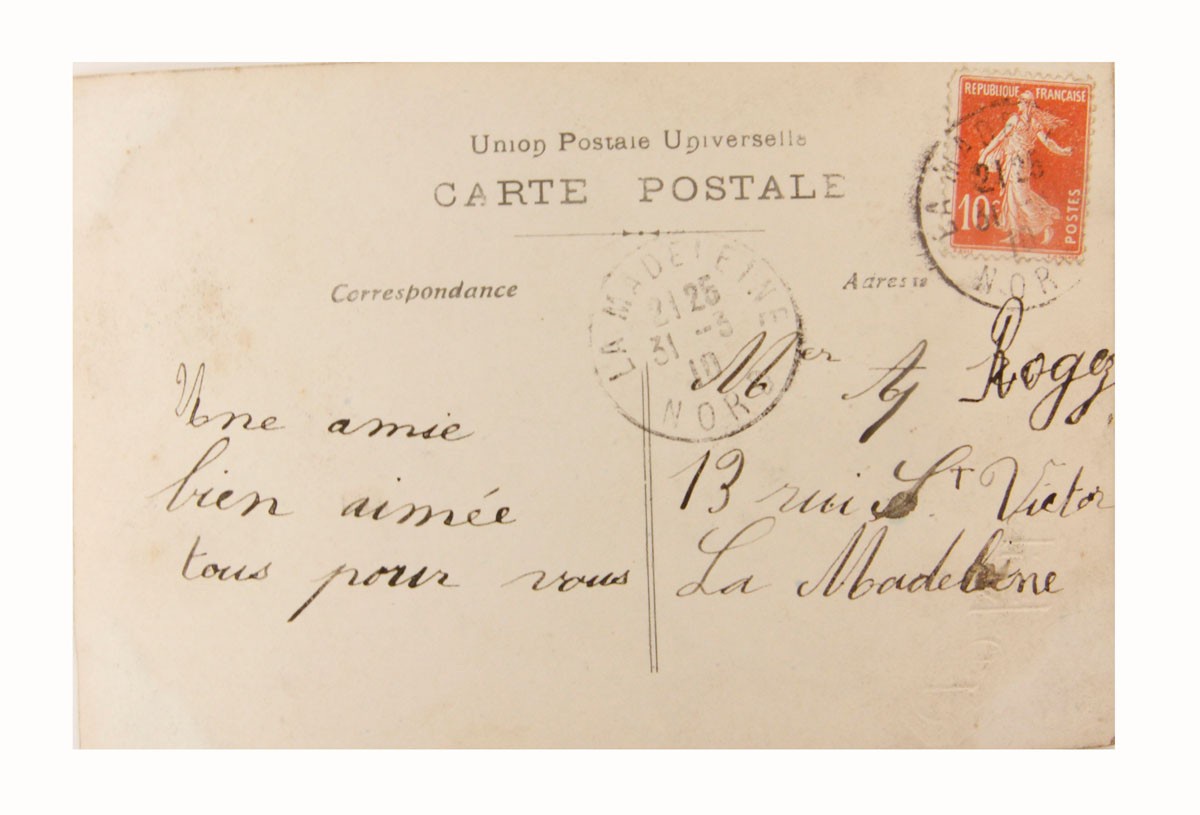 REPUBLIQUE FRANÇAISE
10c
POSTES
Union Postale Universelle
CARTE POSTALE
Correspondance
Adresse
LA MADELEINE
21 25
31 -3
10
NORD
LA MAD
21 25
NOR
Une amie
bien aimée
tous pour vous
Mer A Rogez
13 rui St Victor
La Madeleine